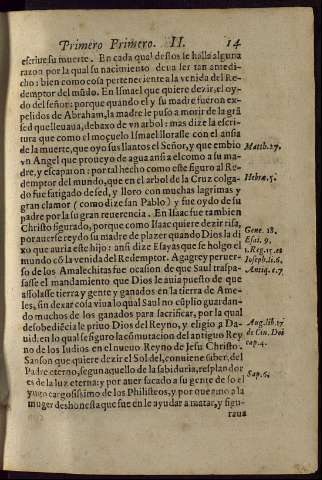 Primero Primero. II. 14
escriue su muerte. En cada qual destos se halla alguna
razon por la qual su nacimiento deua ser tan antedi-
cho: bien como cosa perteneciente a la venida del Re-
demptor del mūdo. En Ismael que quiere dezir, el oy-
do del señor: porque quando el y su madre fueron ex-
pelidos de Abraham, la madre le puso a morir de la grā
sed que lleuaua, debaxo de vn arbol: mas dize la escri-
tura que como el moçuelo Ismael llorasse con el ansia
de la muerte, que oyo sus llantos el Señor, y que embio
vn Angel que proueyo de agua ansi a el como a su ma-
dre, y escaparon: por tal hecho como este figuro al Re-
demptor del mundo, que en el arbol de la Cruz colga-
do fue fatigado de sed, y lloro con muchas lagrimas y
gran clamor (como dize san Pablo) y fue oydo de su
padre por la su gran reuerencia. En Isaac fue tambien
Christo figurado, porque como Isaac quiere dezir risa,
por auerse reydo su madre de plazer quando Dios la di
xo que auria este hijo: ansi dize Esayas que se holgo el
mundo cō la venida del Redemptor. Agag rey peruer-
so de los Amalechitas fue ocasion de que Saul traspas-
sasse el mandamiento que Dios le auia puesto de que
assolasse tierra y gente y ganados en la tierra de Ame-
les, sin dexar cosa viua lo qual Saul no cūplio guardan-
do muchos de los ganados para sacrificar, por la qual
desobediēcia le priuo Dios del Reyno, y eligio a Da-
uid, en lo qual se figuro la cōmutacion del antiguo Rey
no de los Iudios en el nueuo Reyno de Jesu Christo.
Sanson que quiere dezir el Sol del, conuiene saber, del
Padre eterno, segun aquello de la sabiduria, resplandor
es de la luz eterna: y por auer sacado a su gente de so el
yugo cargosissimo de los Philisteos, y por que amo a la
muger deshonesta que fue en le ayudar a matar, y figu-
raua
Matth. 27.
Hebre. 5.
Gene. 18.
Esai. 9.
1. Reg. 15. 28
Ioseph. li. 6.
Antiq. c. 7.
Aug. lib. 17
de Ciui. Dei
cap. 4.
Sap. 6.